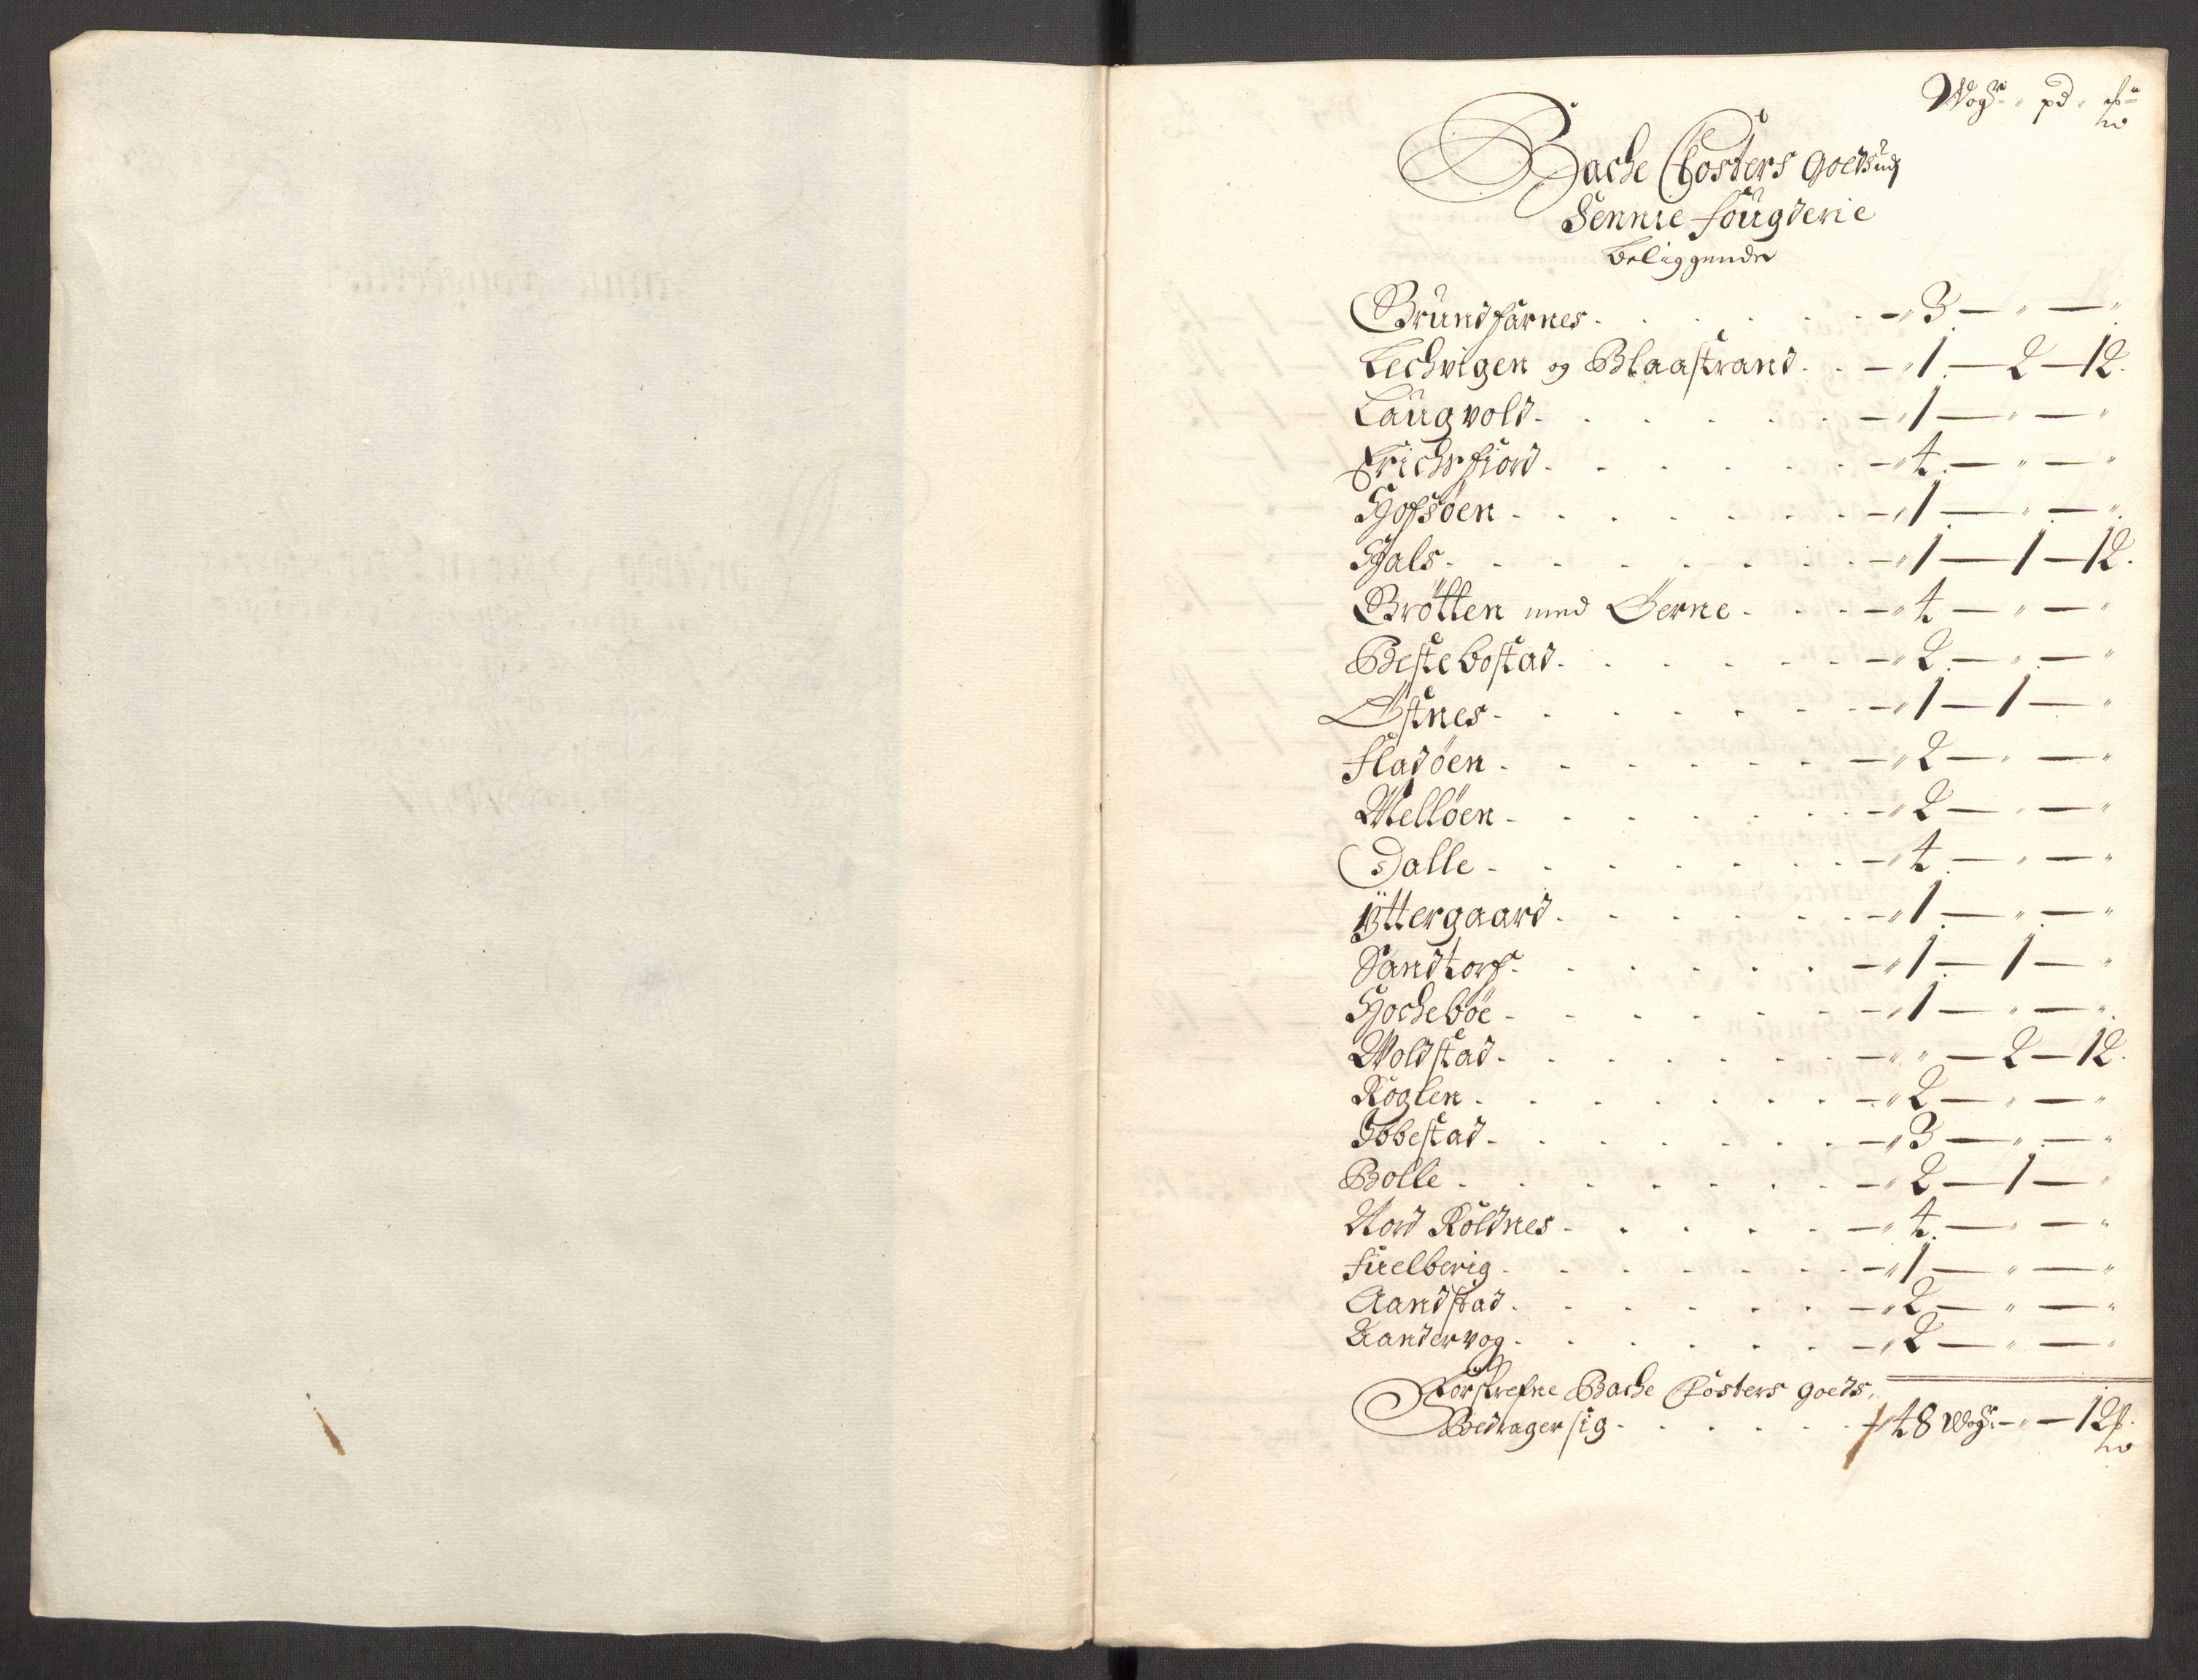 Wogr " pd "
Bache Closters Goeds udj
Sennie Fougderie
beliggende
Brundfarnes . . . . . . — " 3 — " — "
Lechvigen og Blaastrand . . — " 1 — 2 — 12.
Laugvold . . . . . . — " 1 — " — "
Erichsfiord . . . . . . — " 4 — " — "
Hofsöen . . . . . . — " 1 — " — "
Hals . . . . . . . — " 1 — 1 — 12.
Brötten med Öerne . . . — " 4 — " — "
Bestebostad . . . . . . — " 2 — " — "
Östnes . . . . . . . — " 1 — 1 — "
Fladöen . . . . . . . — " 2 — " — "
Mellöen . . . . . . . — " 2 — " — "
Dalle . . . . . . . — " 4 — " — "
Ÿttergaard . . . . . . — " 1 — " — "
Sandtorf . . . . . . — " 1 — 1 — "
Hocheböe . . . . . . — " 1 — " — "
Woldstad . . . . . . — " " — 2 — 12.
Röglen . . . . . . . — " 2 — " — "
Ibbestad . . . . . . — " 3 — " — "
Bolle . . . . . . . — " 2 — 1 — "
Nord Röldnes . . . . . — " 4 — " — "
Fuelberig . . . . . . — " 1 — " — "
Aandstad . . . . . . — " 2 — " — "
Aandervog . . . . . . — " 2 — " — "
Forskrefne Bache Closters Goeds,
Bedrager sig . . . . . 48 Wogr — " — 12